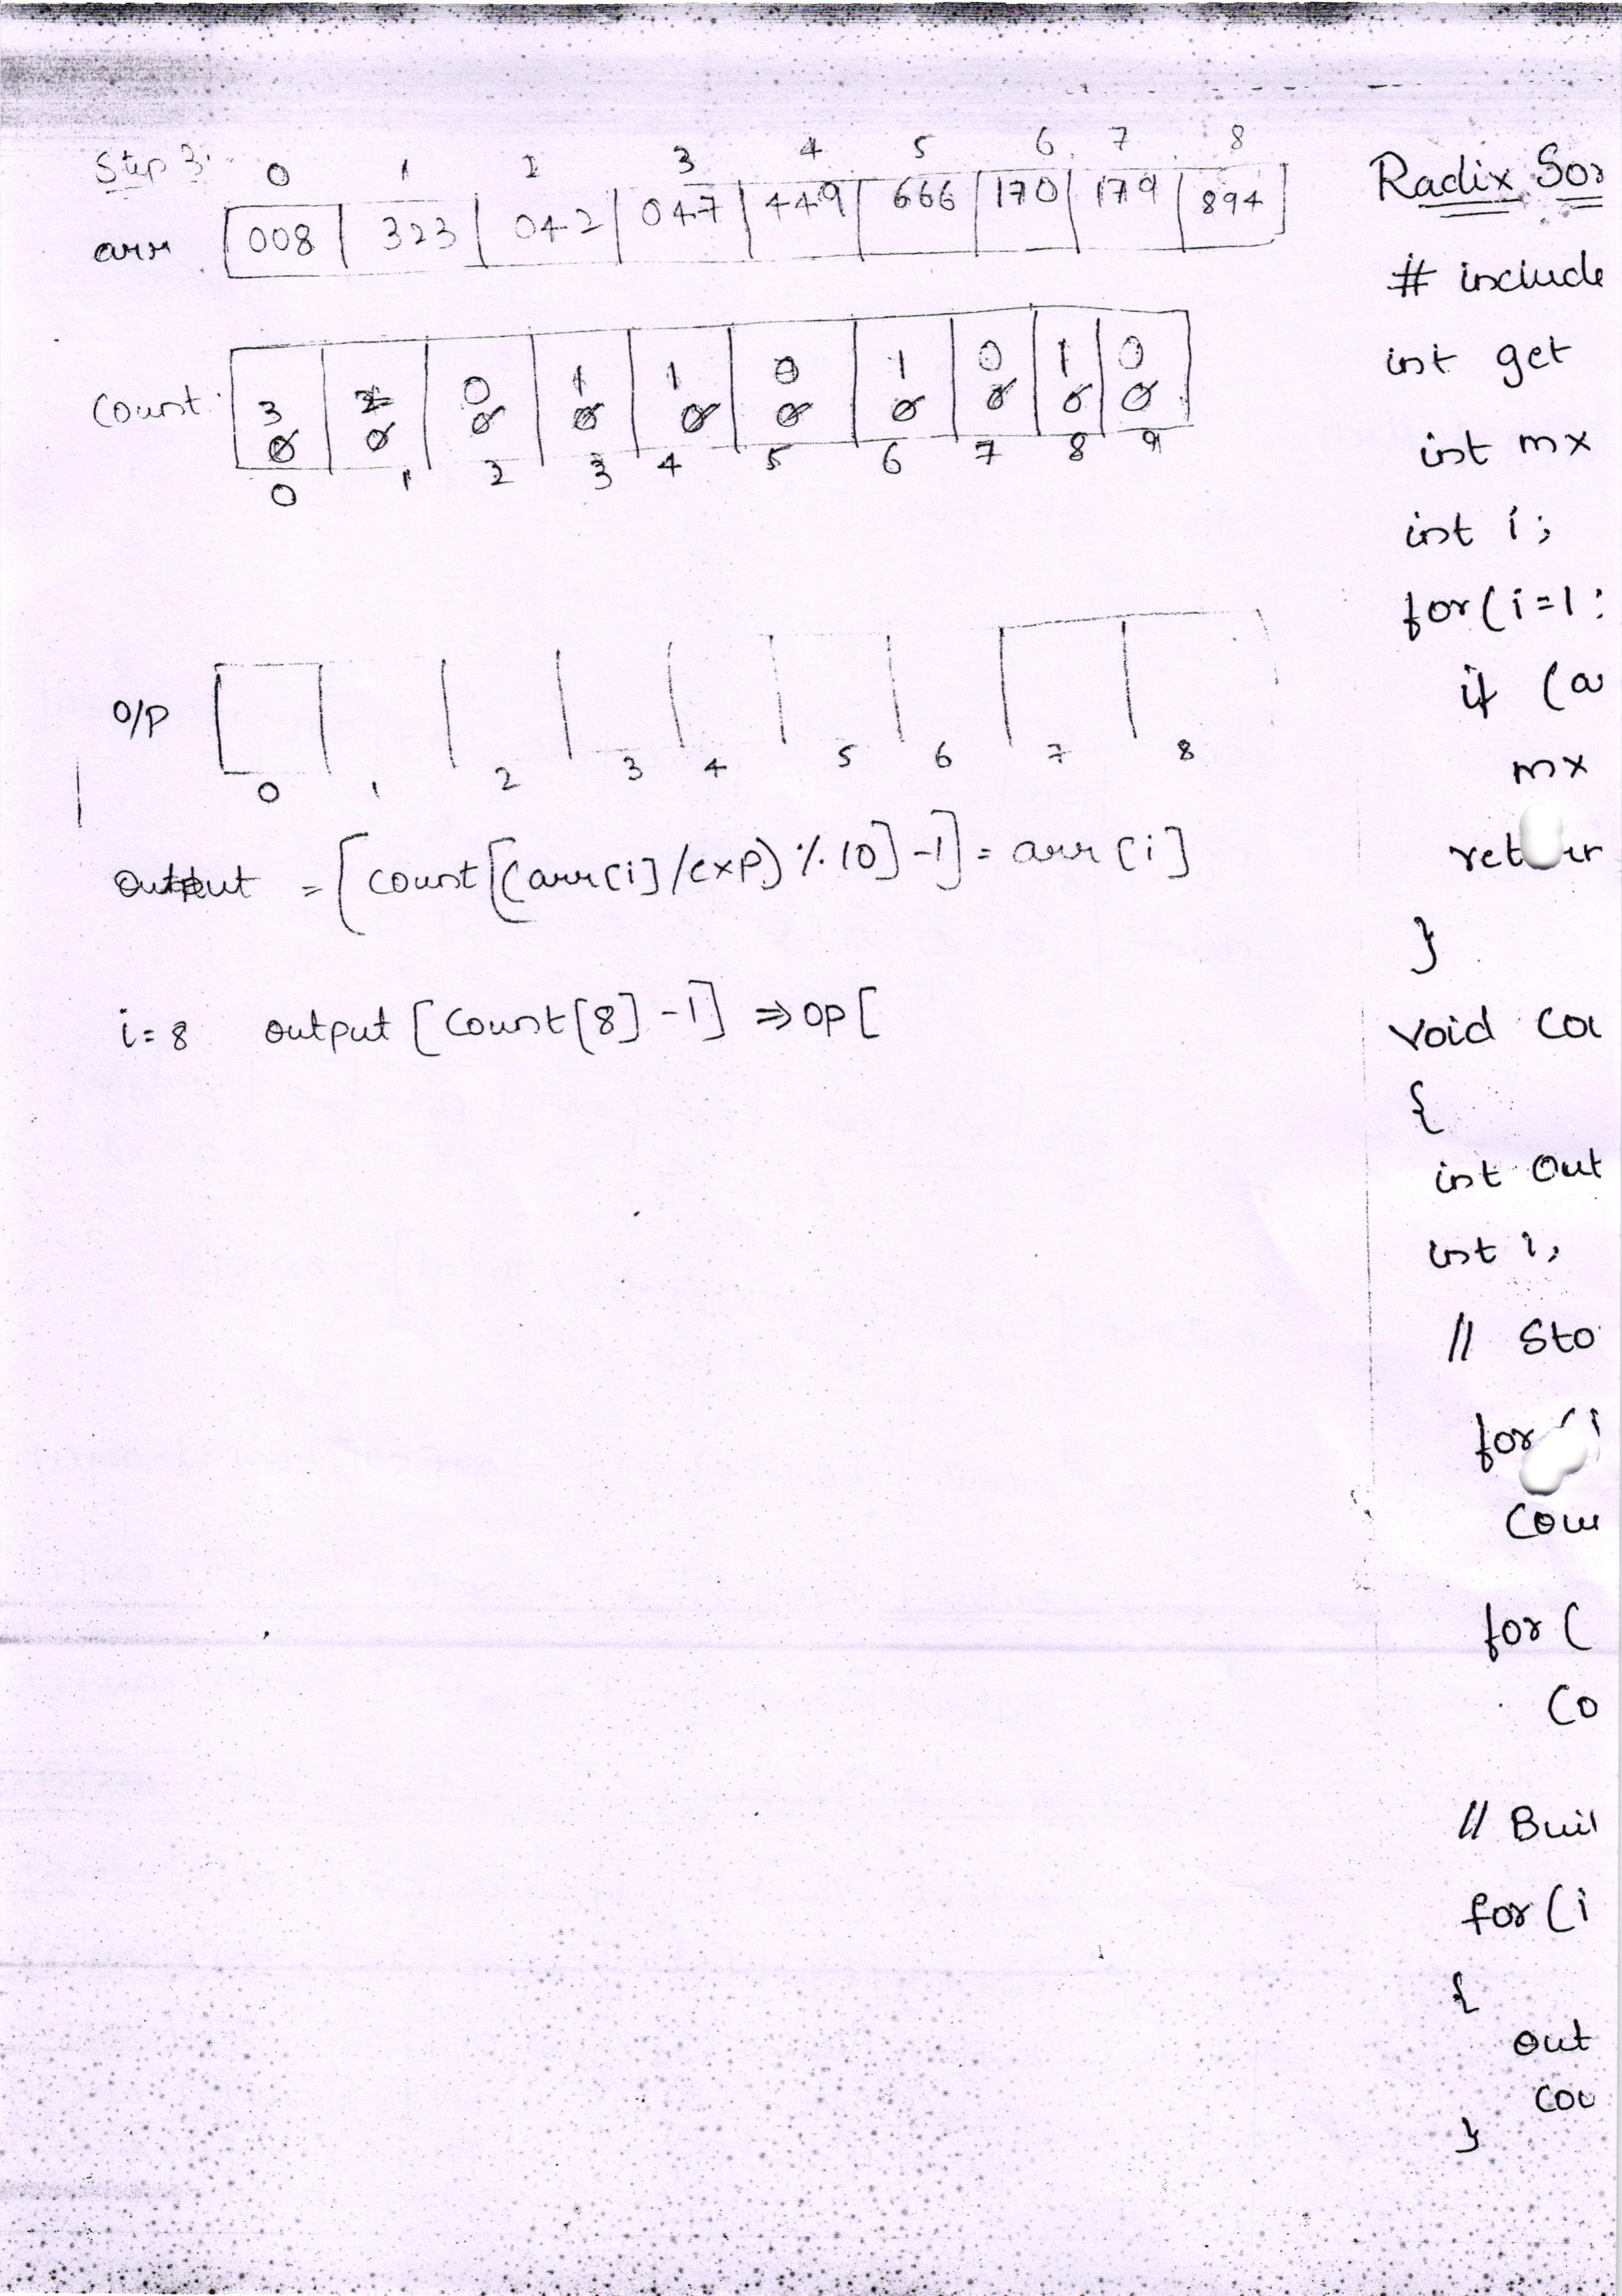 Step 3.
0 1 2 3 4 5 6 7 8
arr 008 323 042 047 449 666 170 179 894
3 2 0 1 1 0 1 0 1 0
Count 0 0 0 0 0 0 0 0 0 0
0 1 2 3 4 5 6 7 8 9
O/P
0 1 2 3 4 5 6 7 8
output = [count[(arr[i]/exp) % 10] -1] = arr[i]
i=8 output [count[8] -1] ⇒ op [
Radix Sor
# include
int get
int mx
int i;
for (i=1;
if (a
mx
retur
}
void cou
{
int out
int i,
// Sto
for (i
cou
for (
co
// Buil
for (i
{
out
cou
}